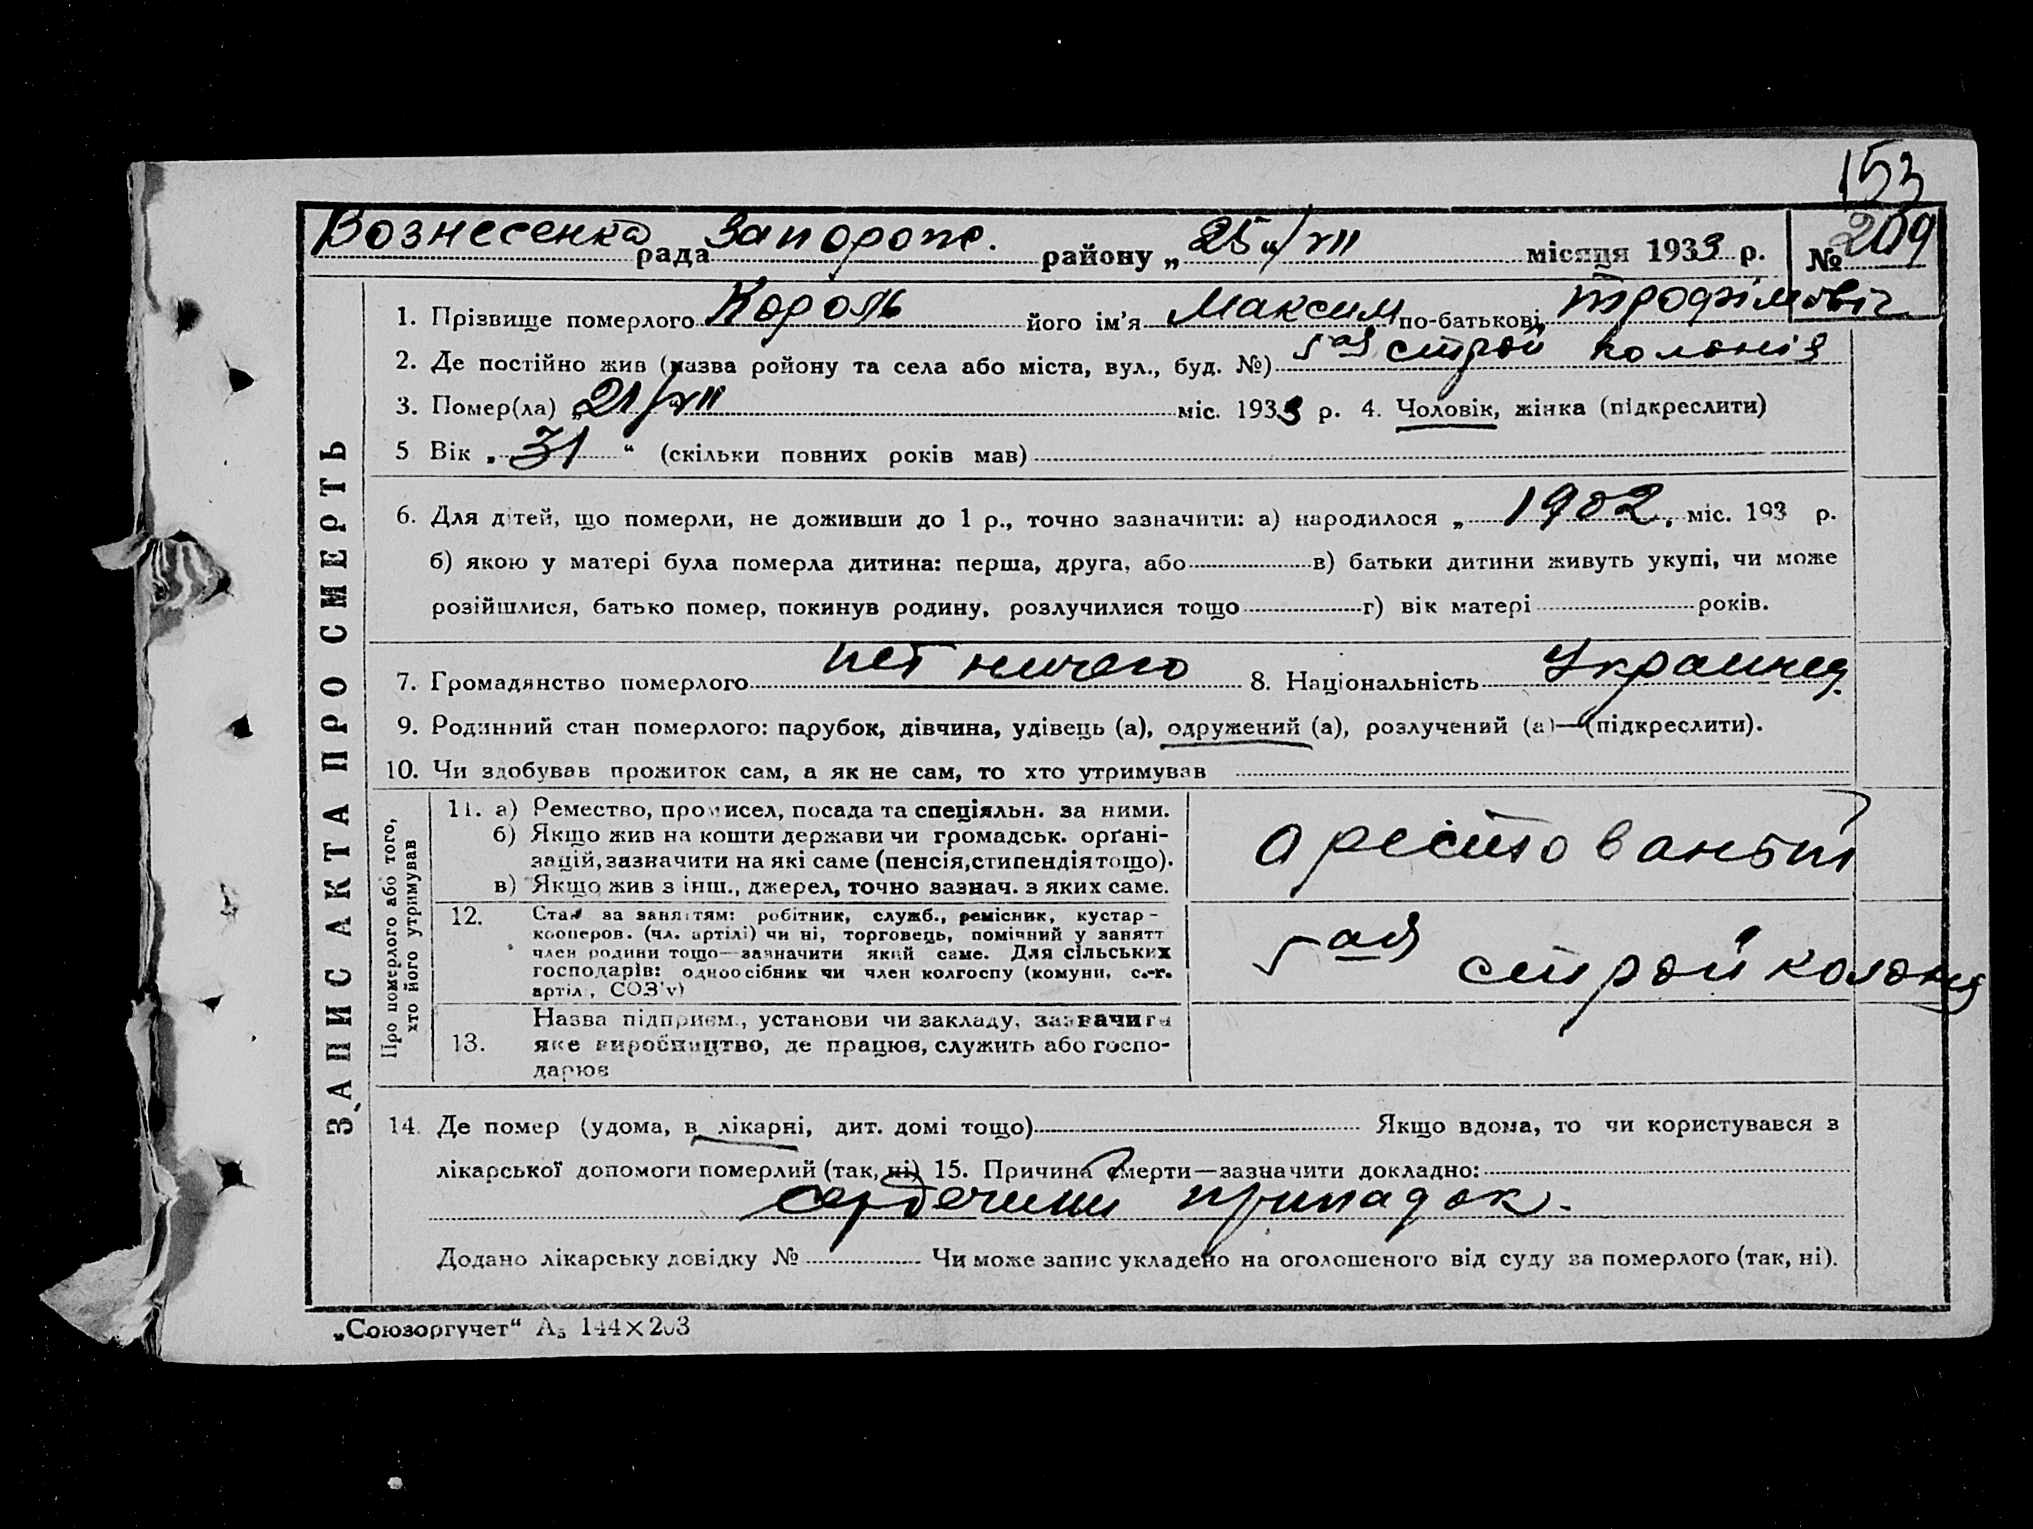 153
Вознесенка рада Запорож. району „ 25 "/VII місяця 1933 р. № 209
ЗАПИС АКТА ПРО СМЕРТЬ
1. Прізвище померлого Король його ім'я Максим по-батькові Трофімовіч
2. Де постійно жив (назва ройону та села або міста, вул., буд. №) 5ая строй колонія
3. Помер(ла) „21/VII міс. 1933 р. 4. Чоловік, жінка (підкреслити)
5 Вік „ 31 “ (скільки повних років мав)
6. Для дітей, що померли, не доживши до 1 р., точно зазначити: а) народилося „ 1902, міс. 193 р.
б) якою у матері була померла дитина: перша, друга, або в) батьки дитини живуть укупі, чи може
розійшлися, батько помер, покинув родину, розлучилися тощо г) вік матері років.
7. Громадянство померлого нет ничего 8. Національність Украинец.
9. Родинний стан померлого: парубок, дівчина, удівець (а), одружений (а), розлучений (а)—(підкреслити).
10. Чи здобував прожиток сам, а як не сам, то хто утримував
Про померлого або того,
хто його утримував
11. а) Ремество, промисел, посада та спеціяльн. за ними.
б) Якщо жив на кошти держави чи громадськ. орґані-
зацій, зазначити на які саме (пенсія, стипендія тощо).
в) Якщо жив з інш., джерел, точно зазнач. з яких саме.
арестований
12. Стан за заняттям: робітник, служб., ремісник, кустар-
кооперов. (чл. артілі) чи ні, торговець, помічний у занятт
член родини тощо—зазначити який саме. Для сільських
господарів: одноосібник чи член колгоспу (комуни, с.-г.
артіл., СОЗ'у)
5ая строй колония
13. Назва підприєм., установи чи закладу, зазначити
яке виробництво, де працює, служить або госпо-
дарює
14. Де помер (удома, в лікарні, дит. домі тощо) Якщо вдома, то чи користувався з
лікарської допомоги померлий (так, ні) 15. Причина смерти—зазначити докладно:
сердечний припадок.
Додано лікарську довідку № Чи може запис укладено на оголошеного від суду за померлого (так, ні).
„Союзоргучет“ А5 144×203